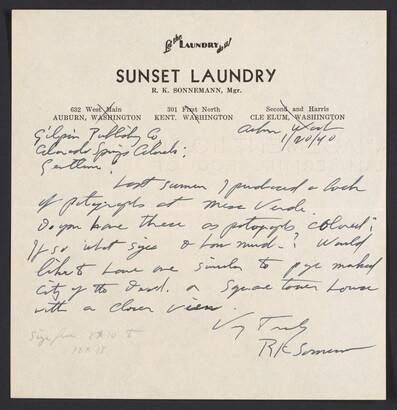 Let the
LAUNDRY do it!
SUNSET LAUNDRY
R. K. SONNEMANN, Mgr.
632 West Main 301 First North Second and Harris
AUBURN, WASHINGTON KENT, WASHINGTON CLE ELUM, WASHINGTON
Auburn, Wash
1/20/40
Gilpin Publishg Co
Colorado Springs Colorado;
Gentlemen:
Last summer I purchased a book
of photographs at Mesa Verde.
Do you have these as photographs colored?
If so what sizes & how much-? Would
like to have one similar to page marked
City of the Dead. or Square tower house
with a closer view.
Very Truly
R K Sonnemann
Size from 8x10 to